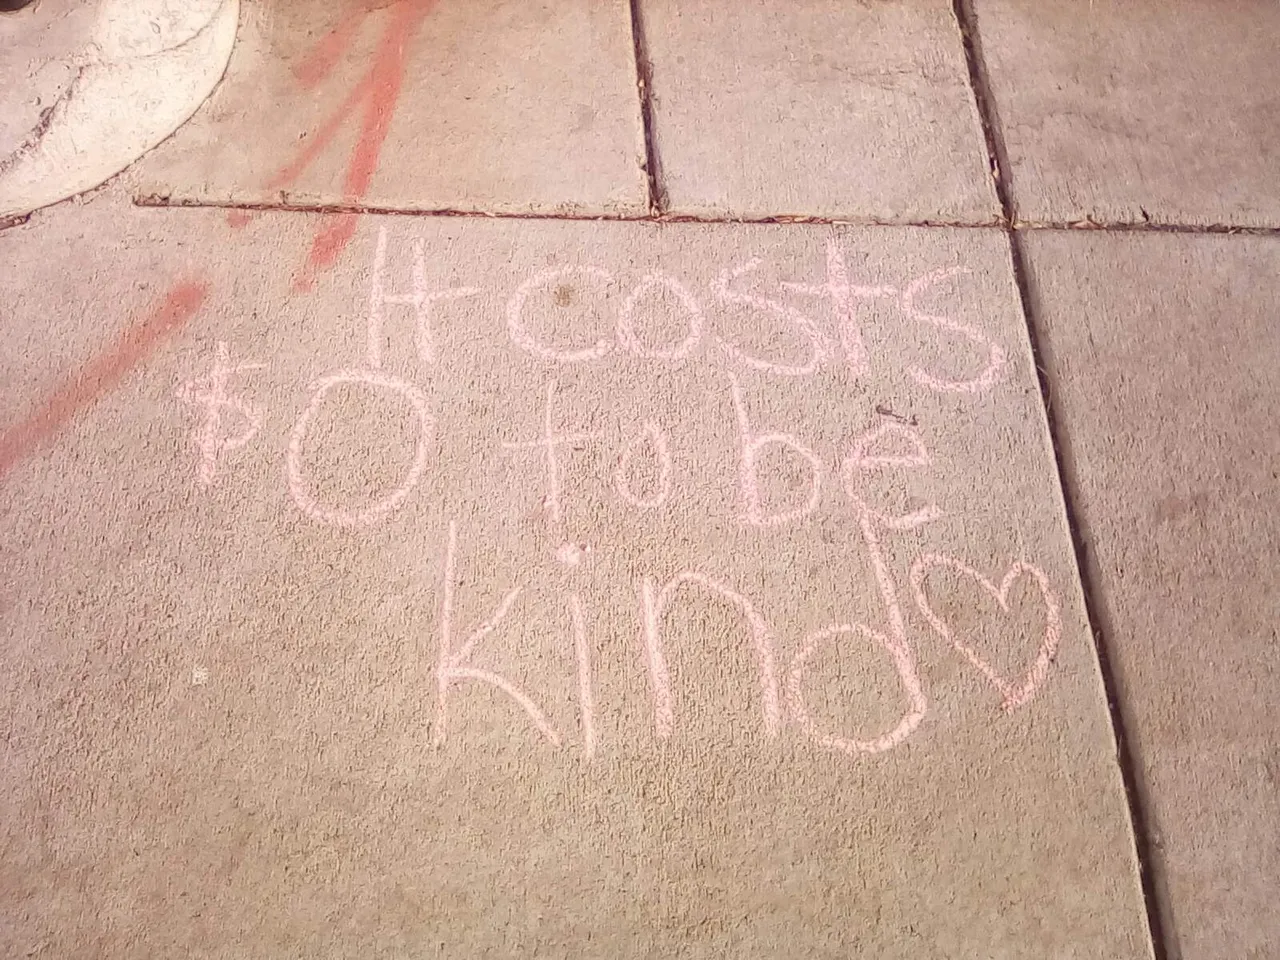 It costs
$0 to be
kind♡